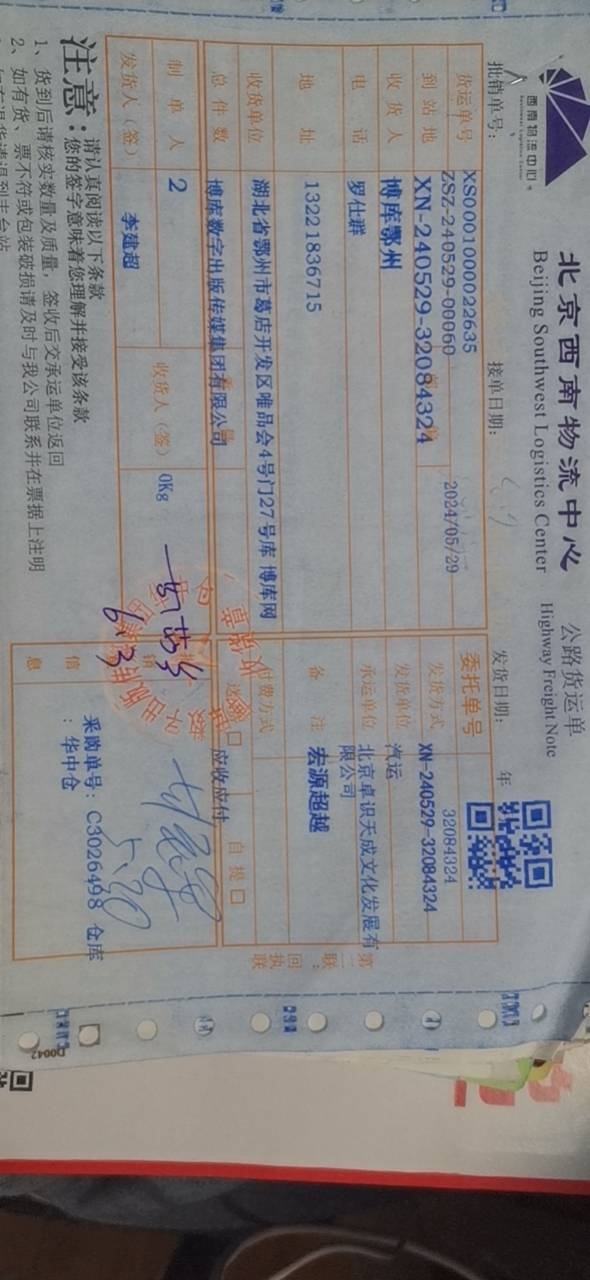 西南物流中心
Southwest Logistics Center
北京西南物流中心
公路货运单
Beijing Southwest Logistics Center
Highway Freight Note
批销单号：
接单日期：
发货日期： 年
XS0001000022635
货运单号
ZSZ-240529-00060
2024/05/29
委托单号
32084324
到站地
XN-240529-32084324
发货方式
XN-240529-32084324
收货人
博库鄂州
发货单位
汽运
电话
罗仕群
承运单位
北京卓识天成文化发展有限公司
地址
13221836715
备注
宏源超越
收货单位
湖北省鄂州市葛店开发区唯品会4号门27号库 博库网
付费方式
总件数
博库数字出版传媒集团有限公司
送
应收应付
自提口
制单人
2
收货人（签）
0Kg
6.3
5.30
发货人（签）
李建超
信息
采购单号：C3026498 仓库
：华中仓
第二联：回执联
注意：
请认真阅读以下条款
您的签字意味着您理解并接受该条款
1、货到后请核实数量及质量，签收后交承运单位返回
2、如有货、票不符或包装破损请及时与我公司联系并在票据上注明